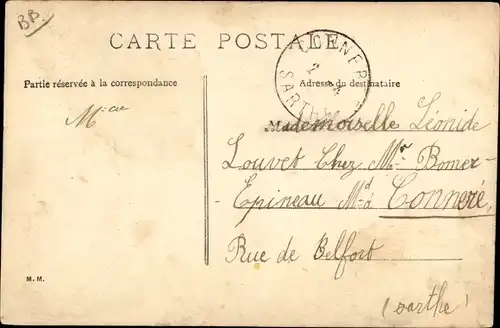 BB.
CARTE POSTALE
CONNERRÉ
SARTHE
Partie réservée à la correspondance
Adresse du destinataire
Mademoiselle Léonide
Louvet Chez Mr Bomer-
-Epineau Md à Conneré,
Rue de Belfort
M. M.
(sarthe)